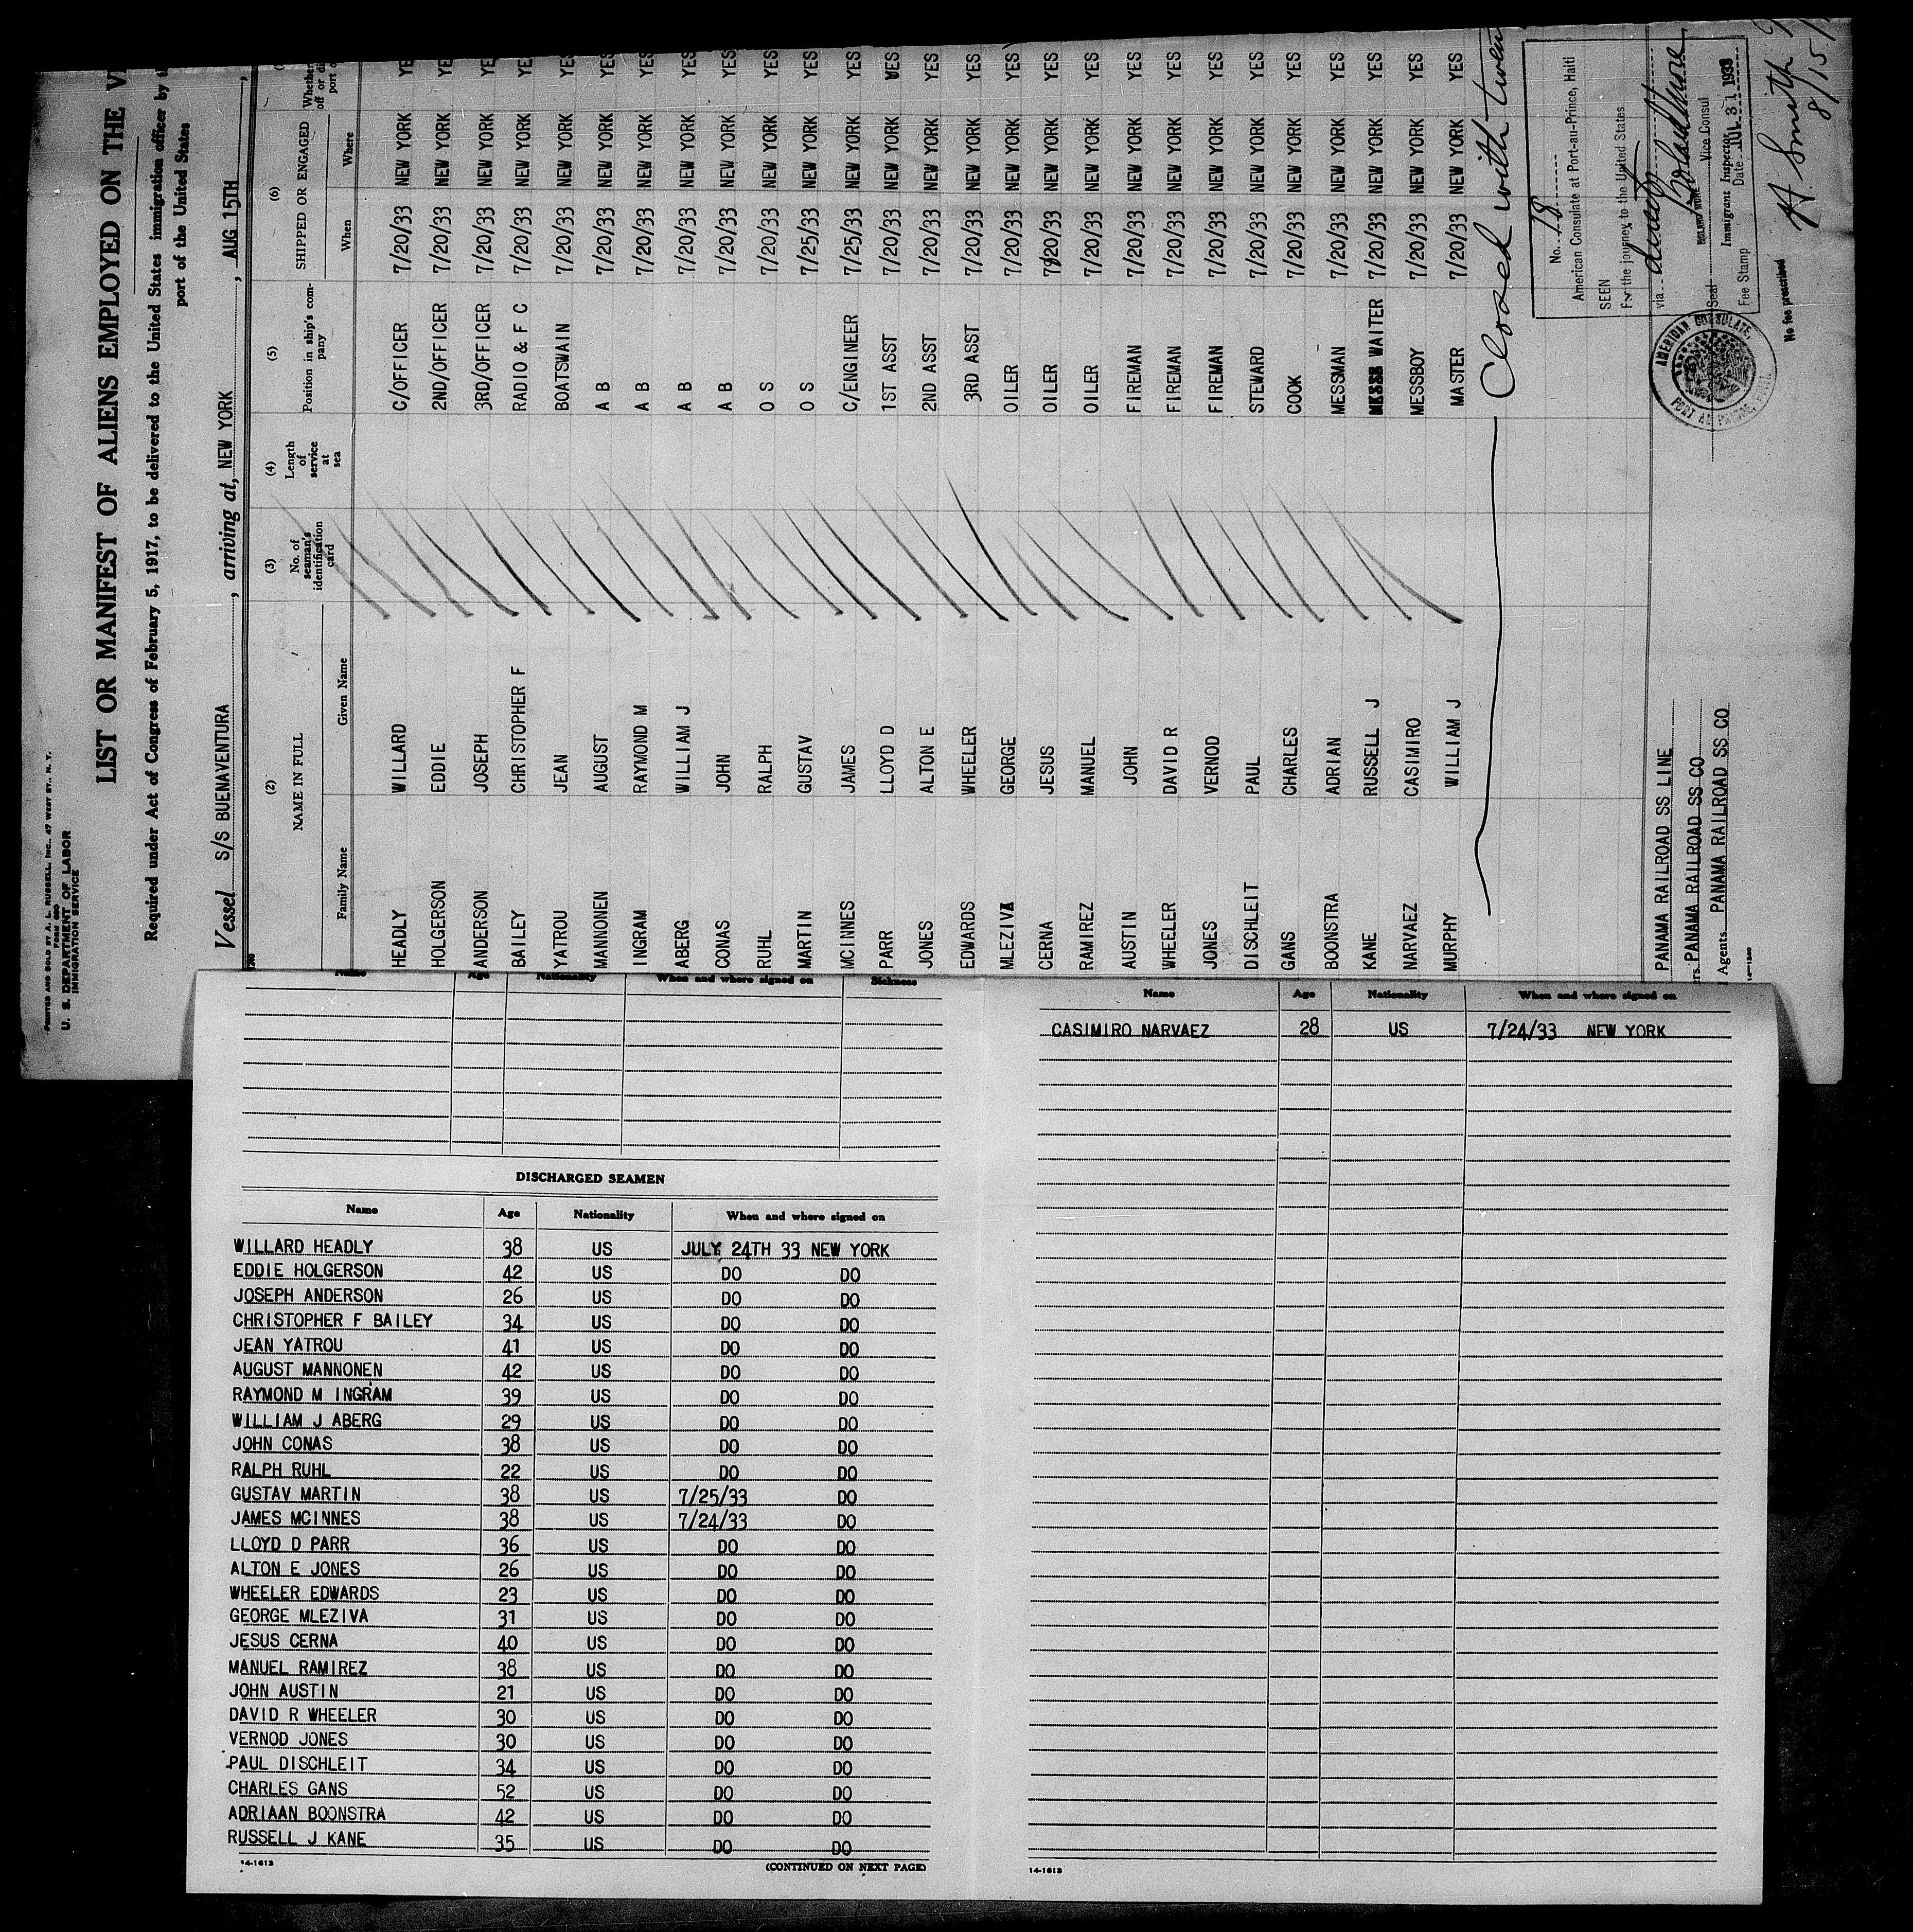 PRINTED AND SOLD BY A. L. RUSSELL, INC., 47 WEST ST., N. Y.
FORM 680
U. S. DEPARTMENT OF LABOR
IMMIGRATION SERVICE
LIST OR MANIFEST OF ALIENS EMPLOYED ON THE V
Required under Act of Congress of February 5, 1917, to be delivered to the United States immigration officer by
port of the United States
Vessel S/S BUENAVENTURA, arriving at, NEW YORK, AUG 15TH,
(2) (3) (4) (5) (6)
NAME IN FULL No. of seaman's identification card Length of service at sea Position in ship's company SHIPPED OR ENGAGED
Family Name Given Name When Where
HEADLY WILLARD C/OFFICER 7/20/33 NEW YORK YE
HOLGERSON EDDIE 2ND/OFFICER 7/20/33 NEW YORK YE
ANDERSON JOSEPH 3RD/OFFICER 7/20/33 NEW YORK YE
BAILEY CHRISTOPHER F RADIO & F C 7/20/33 NEW YORK YE
YATROU JEAN BOATSWAIN 7/20/33 NEW YORK YES
MANNONEN AUGUST A B 7/20/33 NEW YORK YES
INGRAM RAYMOND M A B 7/20/33 NEW YORK YES
ABERG WILLIAM J A B 7/20/33 NEW YORK YES
CONAS JOHN A B 7/20/33 NEW YORK YES
RUHL RALPH O S 7/20/33 NEW YORK YES
MARTIN GUSTAV O S 7/25/33 NEW YORK YES
MCINNES JAMES C/ENGINEER 7/25/33 NEW YORK YES
PARR LLOYD D 1ST ASST 7/20/33 NEW YORK YES
JONES ALTON E 2ND ASST 7/20/33 NEW YORK YES
EDWARDS WHEELER 3RD ASST 7/20/33 NEW YORK YES
MLEZIVA GEORGE OILER 7/20/33 NEW YORK YES
CERNA JESUS OILER 7/20/33 NEW YORK YES
RAMIREZ MANUEL OILER 7/20/33 NEW YORK YES
AUSTIN JOHN FIREMAN 7/20/33 NEW YORK YES
WHEELER DAVID R FIREMAN 7/20/33 NEW YORK YES
JONES VERNOD FIREMAN 7/20/33 NEW YORK YES
DISCHLEIT PAUL STEWARD 7/20/33 NEW YORK YES
GANS CHARLES COOK 7/20/33 NEW YORK YES
BOONSTRA ADRIAN MESSMAN 7/20/33 NEW YORK YES
KANE RUSSELL J WAITER 7/20/33 NEW YORK YES
NARVAEZ CASIMIRO MESSBOY 7/20/33 NEW YORK YES
MURPHY WILLIAM J MASTER 7/20/33 NEW YORK YES
Closed with twen
No. 18
American Consulate at Port-au-Prince, Haiti
SEEN
For the journey to the United States
via direct
Vice Consul
Seal Immigrant Inspector
Fee Stamp Date JUL 31 1933
AMERICAN CONSULATE
PORT AU PRINCE, HAITI
No fee prescribed
H. Smith
8/15/
PANAMA RAILROAD SS LINE
ers PANAMA RAILROAD SS CO
Agents PANAMA RAILROAD SS CO
Name Age Nationality When and where signed on Sickness
DISCHARGED SEAMEN
Name Age Nationality When and where signed on
WILLARD HEADLY 38 US JULY 24TH 33 NEW YORK
EDDIE HOLGERSON 42 US DO DO
JOSEPH ANDERSON 26 US DO DO
CHRISTOPHER F BAILEY 34 US DO DO
JEAN YATROU 41 US DO DO
AUGUST MANNONEN 42 US DO DO
RAYMOND M INGRAM 39 US DO DO
WILLIAM J ABERG 29 US DO DO
JOHN CONAS 38 US DO DO
RALPH RUHL 22 US DO DO
GUSTAV MARTIN 38 US 7/25/33 DO
JAMES MCINNES 38 US 7/24/33 DO
LLOYD D PARR 36 US DO DO
ALTON E JONES 26 US DO DO
WHEELER EDWARDS 23 US DO DO
GEORGE MLEZIVA 31 US DO DO
JESUS CERNA 40 US DO DO
MANUEL RAMIREZ 38 US DO DO
JOHN AUSTIN 21 US DO DO
DAVID R WHEELER 30 US DO DO
VERNOD JONES 30 US DO DO
PAUL DISCHLEIT 34 US DO DO
CHARLES GANS 52 US DO DO
ADRIAAN BOONSTRA 42 US DO DO
RUSSELL J KANE 35 US DO DO
14-1613 (CONTINUED ON NEXT PAGE)
Name Age Nationality When and where signed on
CASIMIRO NARVAEZ 28 US 7/24/33 NEW YORK
14-1613